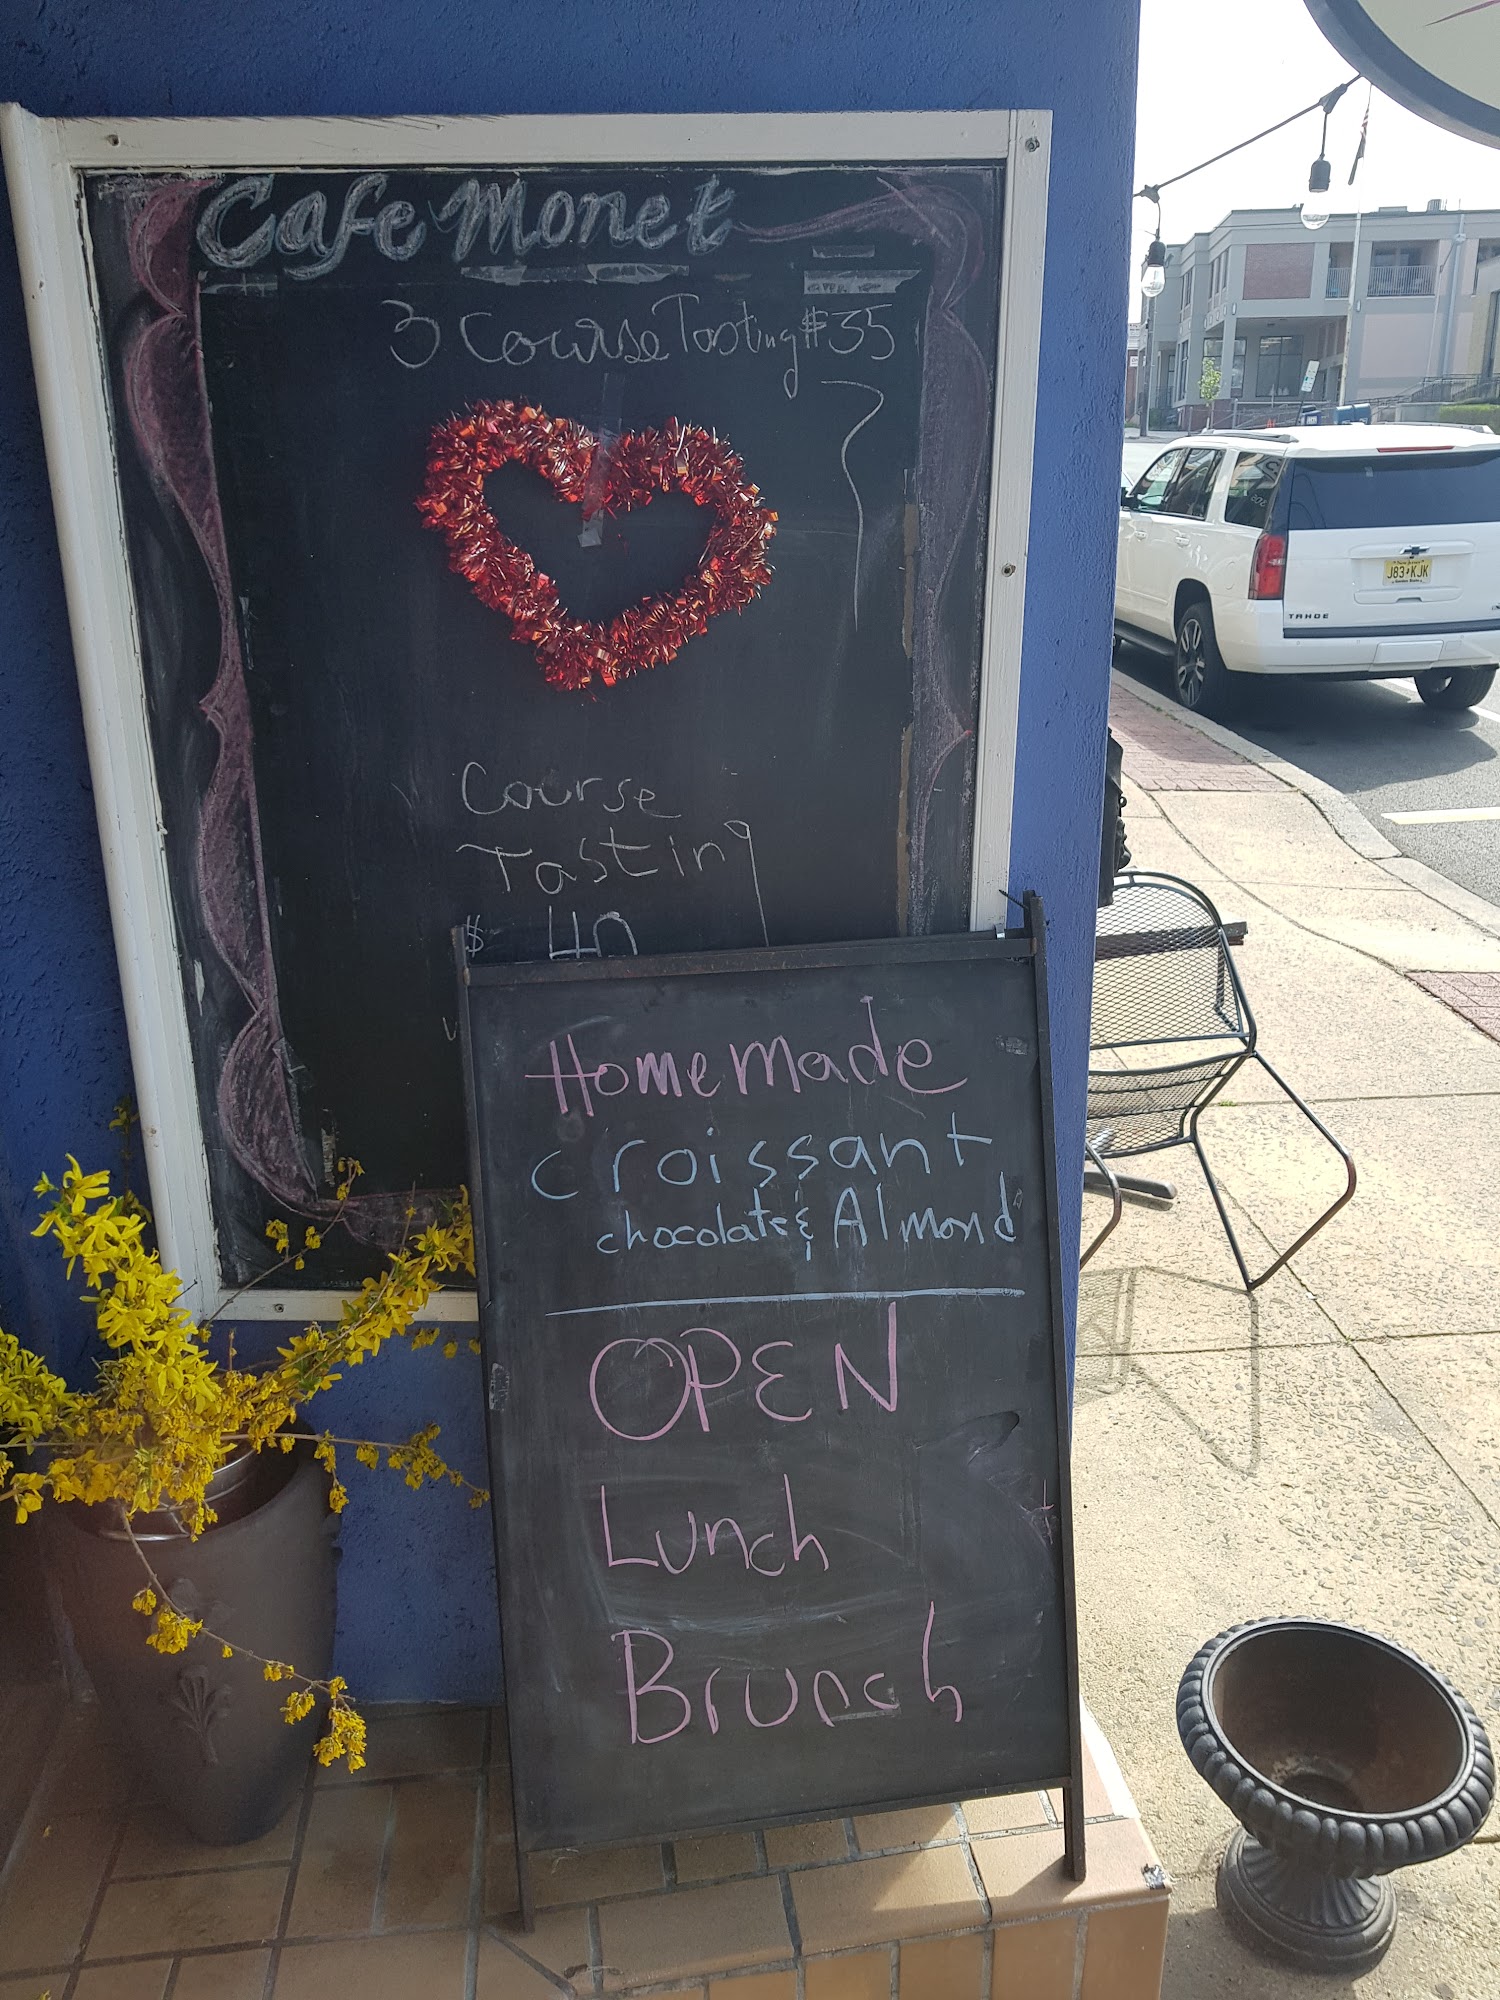 Cafe Monet
3 Course Tasting $35
Course
Tasting
$ 40
Homemade
croissant
chocolate & Almond
OPEN
Lunch
Brunch
J83 KJK
TAHOE